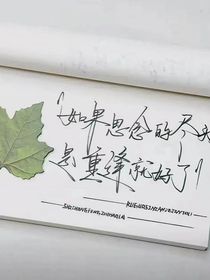 「如果思念的尽头
是重逢就好了」